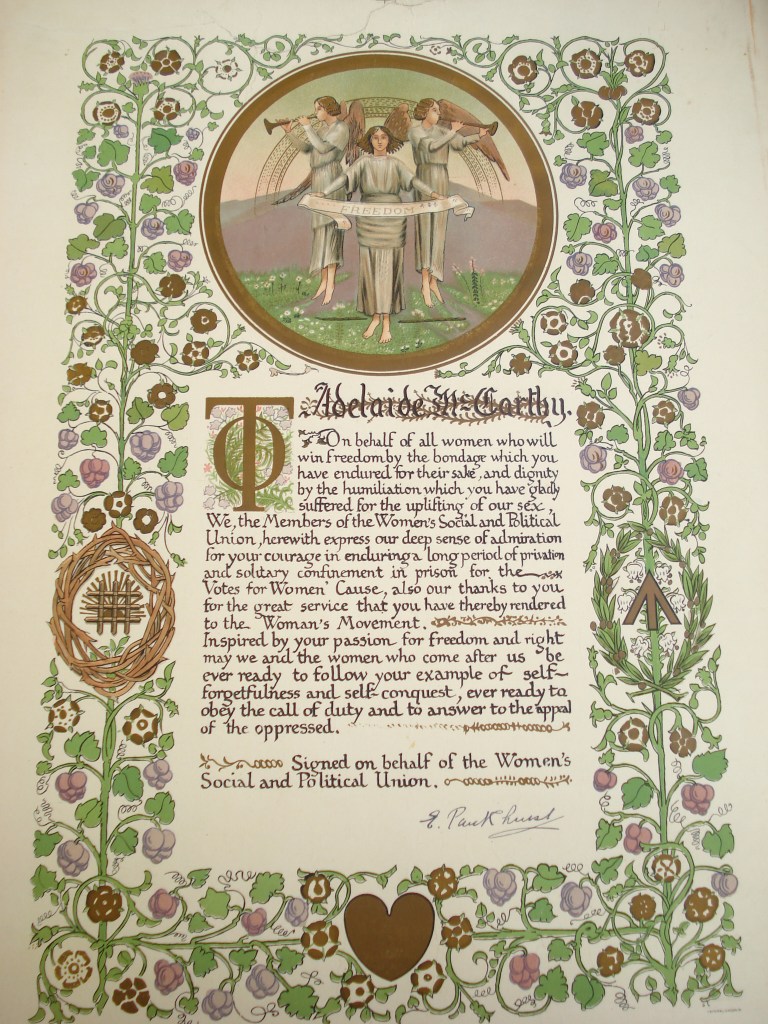 FREEDOM
To Adelaide McCarthy.
On behalf of all women who will
win freedom by the bondage which you
have endured for their sake, and dignity
by the humiliation which you have gladly
suffered for the uplifting of our sex,
We, the Members of the Women's Social and Political
Union, herewith express our deep sense of admiration
for your courage in enduring a long period of privation
and solitary confinement in prison for the
Votes for Women' Cause, also our thanks to you
for the great service that you have thereby rendered
to the Woman's Movement.
Inspired by your passion for freedom and right
may we and the women who come after us be
ever ready to follow your example of self-
forgetfulness and self-conquest, ever ready to
obey the call of duty and to answer to the appeal
of the oppressed.
Signed on behalf of the Women's
Social and Political Union.
E. Pankhurst